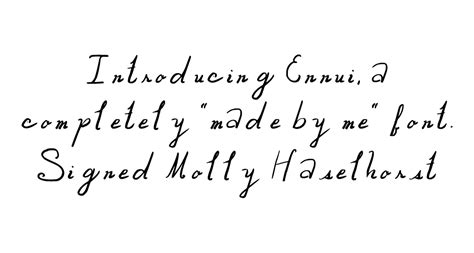 Introducing Ennui, a
completely "made by me" font.
Signed Molly Haselhorst